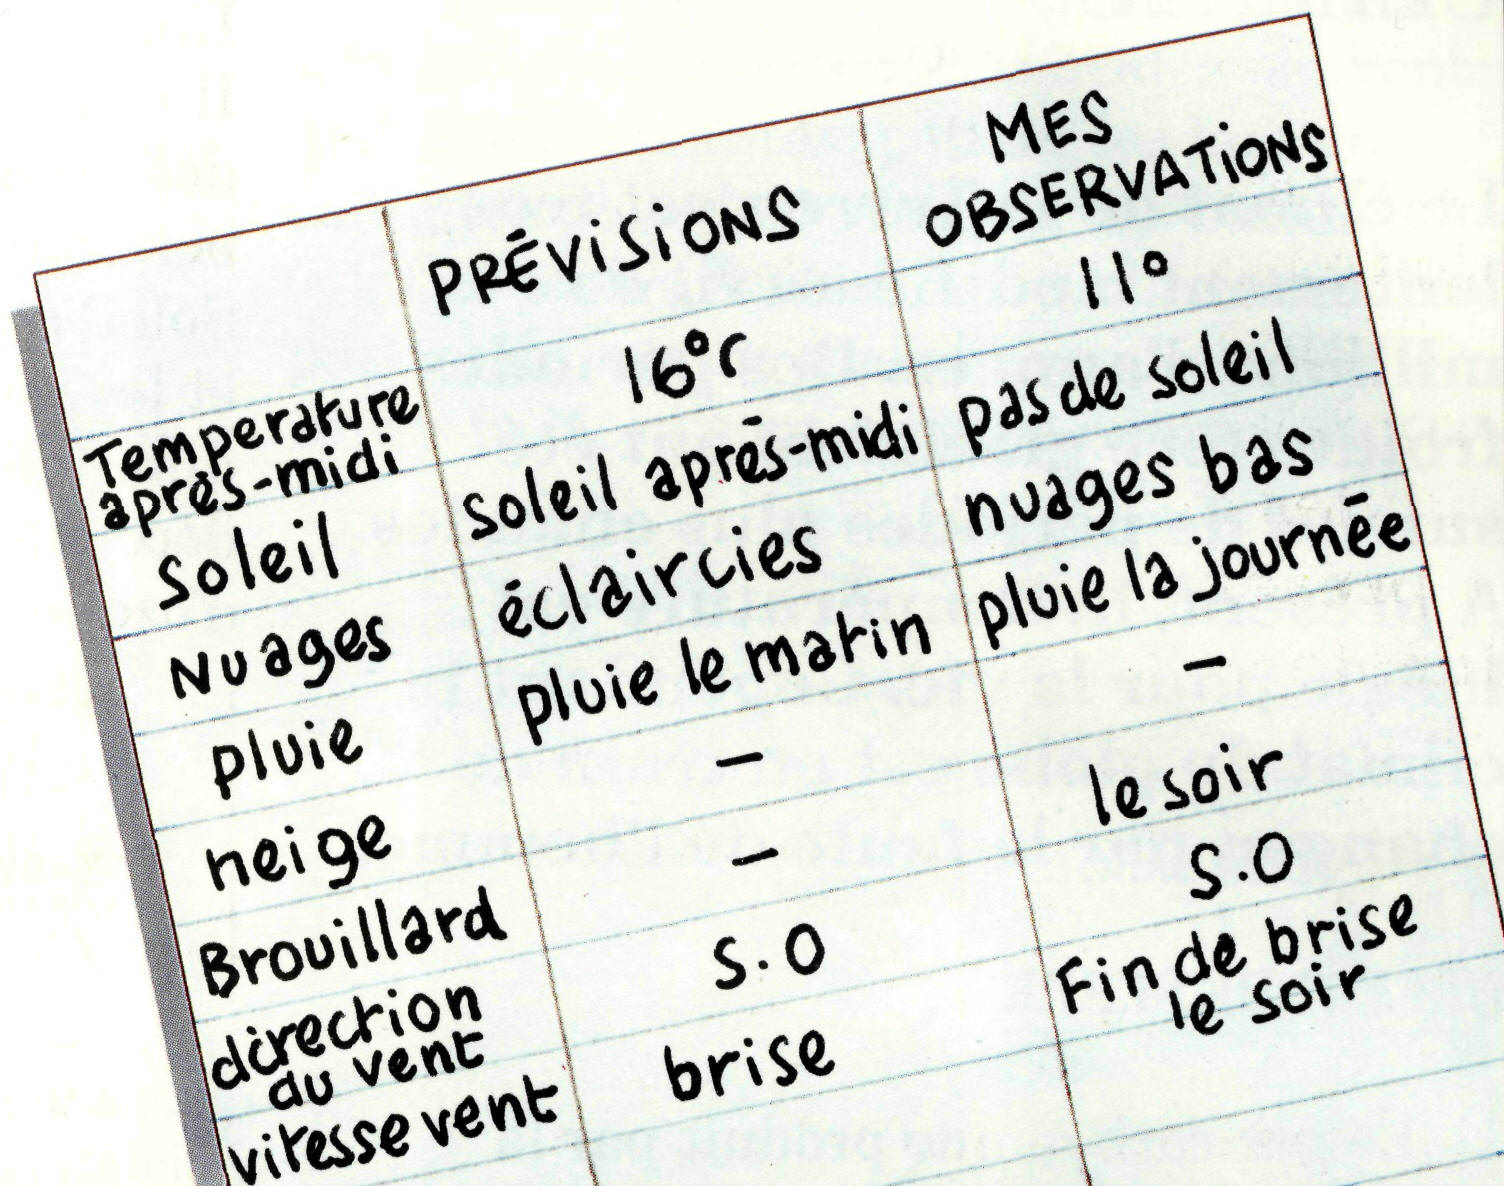 PRÉVISIONS MES
OBSERVATIONS
Temperature
après-midi 16°c 11°
Soleil soleil après-midi pas de soleil
Nuages éclaircies nuages bas
pluie pluie le matin pluie la journée
neige – –
Brouillard – le soir
direction
du vent S.O S.O
vitesse vent brise Fin de brise
le soir